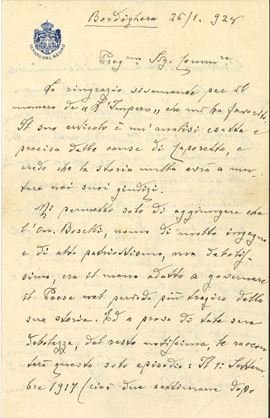 SENATO DEL REGNO
Bordighera 26/1. 924
Preg.mo Sig. Comm.re
La ringrazio vivamente per il
numero de "L'Impero" che mi ha favorito
Il suo articolo è un'analisi esatta e
precisa delle cause di Caporetto, e
credo che la storia nulla avrà a mu-
tare nei suoi giudizi.
Mi permetto solo di aggiungere che
l'On. Boselli, uomo di molto ingegno
e di alto patriottismo, ma debolis-
simo, era il meno adatto a governare
il Paese nel periodo più tragico della
sua storia. Ed a prova di tale sua
debolezza, del resto notissima, le raccon-
terò questo solo episodio: Il 1º Settem-
bre 1917 (cioè due settimane dopo